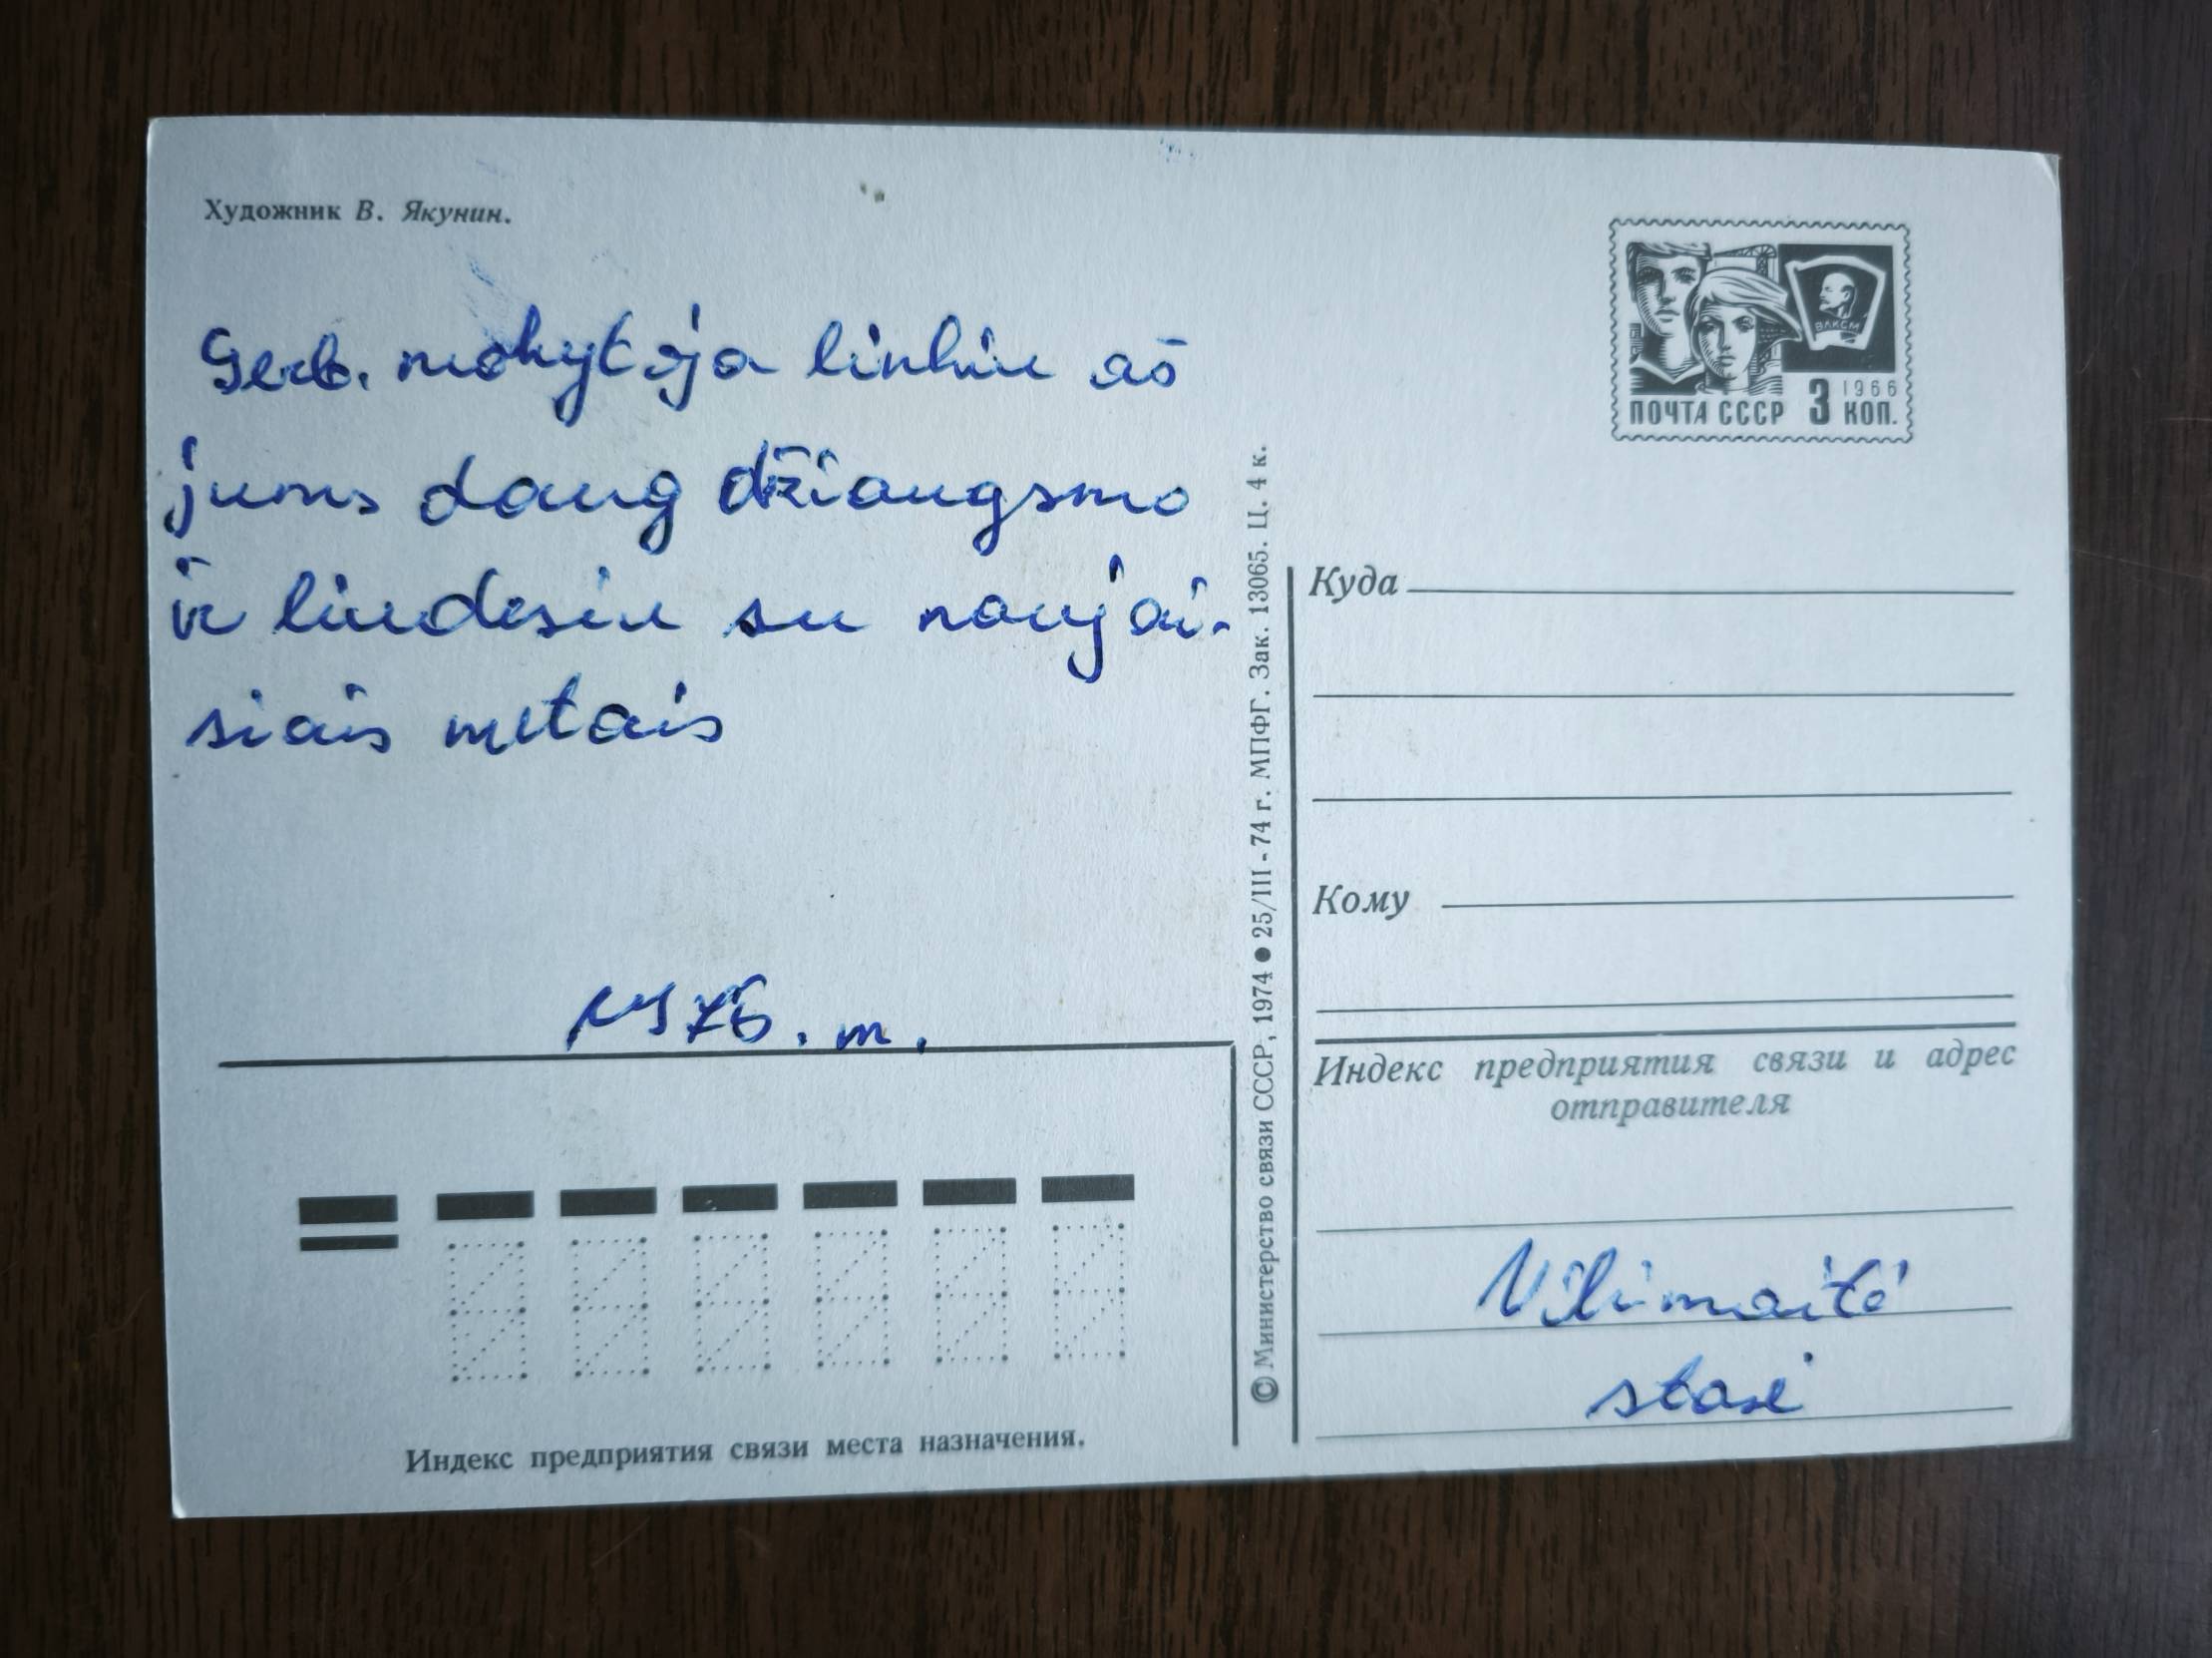 Художник В. Якунин.
Gerb. mokytoja linkiu aš
jums daug džiaugsmo
ir liudesiu su naujai-
siais metais
1976. m.
Индекс предприятия связи места назначения.
© Министерство связи СССР, 1974 ● 25/III - 74 г. МПФГ. Зак. 13065. Ц. 4 к.
ВЛКСМ
1966
ПОЧТА СССР 3 КОП.
Куда
Кому
Индекс предприятия связи и адрес
отправителя
Vilimaitė
stasė